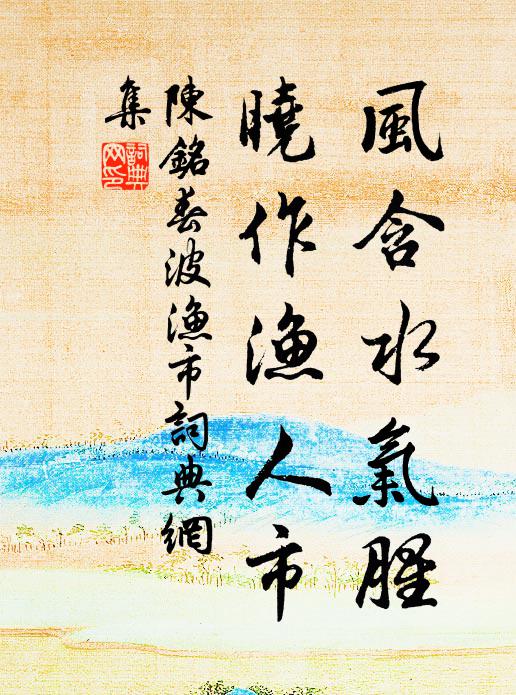 風含水氣腥
曉作漁人市
陳銘春波漁市詞典網
集
詞典
网印